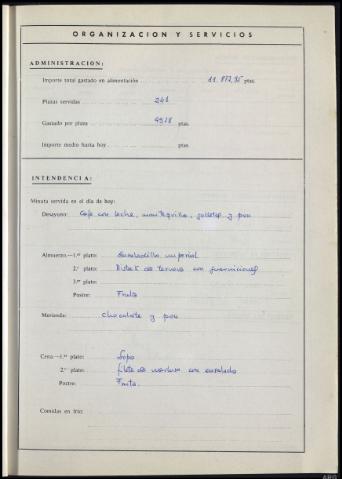 ORGANIZACION Y SERVICIOS
ADMINISTRACION:
Importe total gastado en alimentación 11.877,95 ptas.
Plazas servidas 241
Gastado por plaza 49,28 ptas.
Importe medio hasta hoy ptas.
INTENDENCIA:
Minuta servida en el día de hoy:
Desayuno: Café con leche, mantequilla, galletas y pan
Almuerzo.—1.er plato: Ensaladilla imperial
2.º plato: Bistek de ternera con guarniciones
3.er plato:
Postre: Fruta
Merienda: Chocolate y pan
Cena.—1.er plato: Sopa
2.º plato: filete de merluza con ensalada
Postre: Fruta.
Comidas en frío: